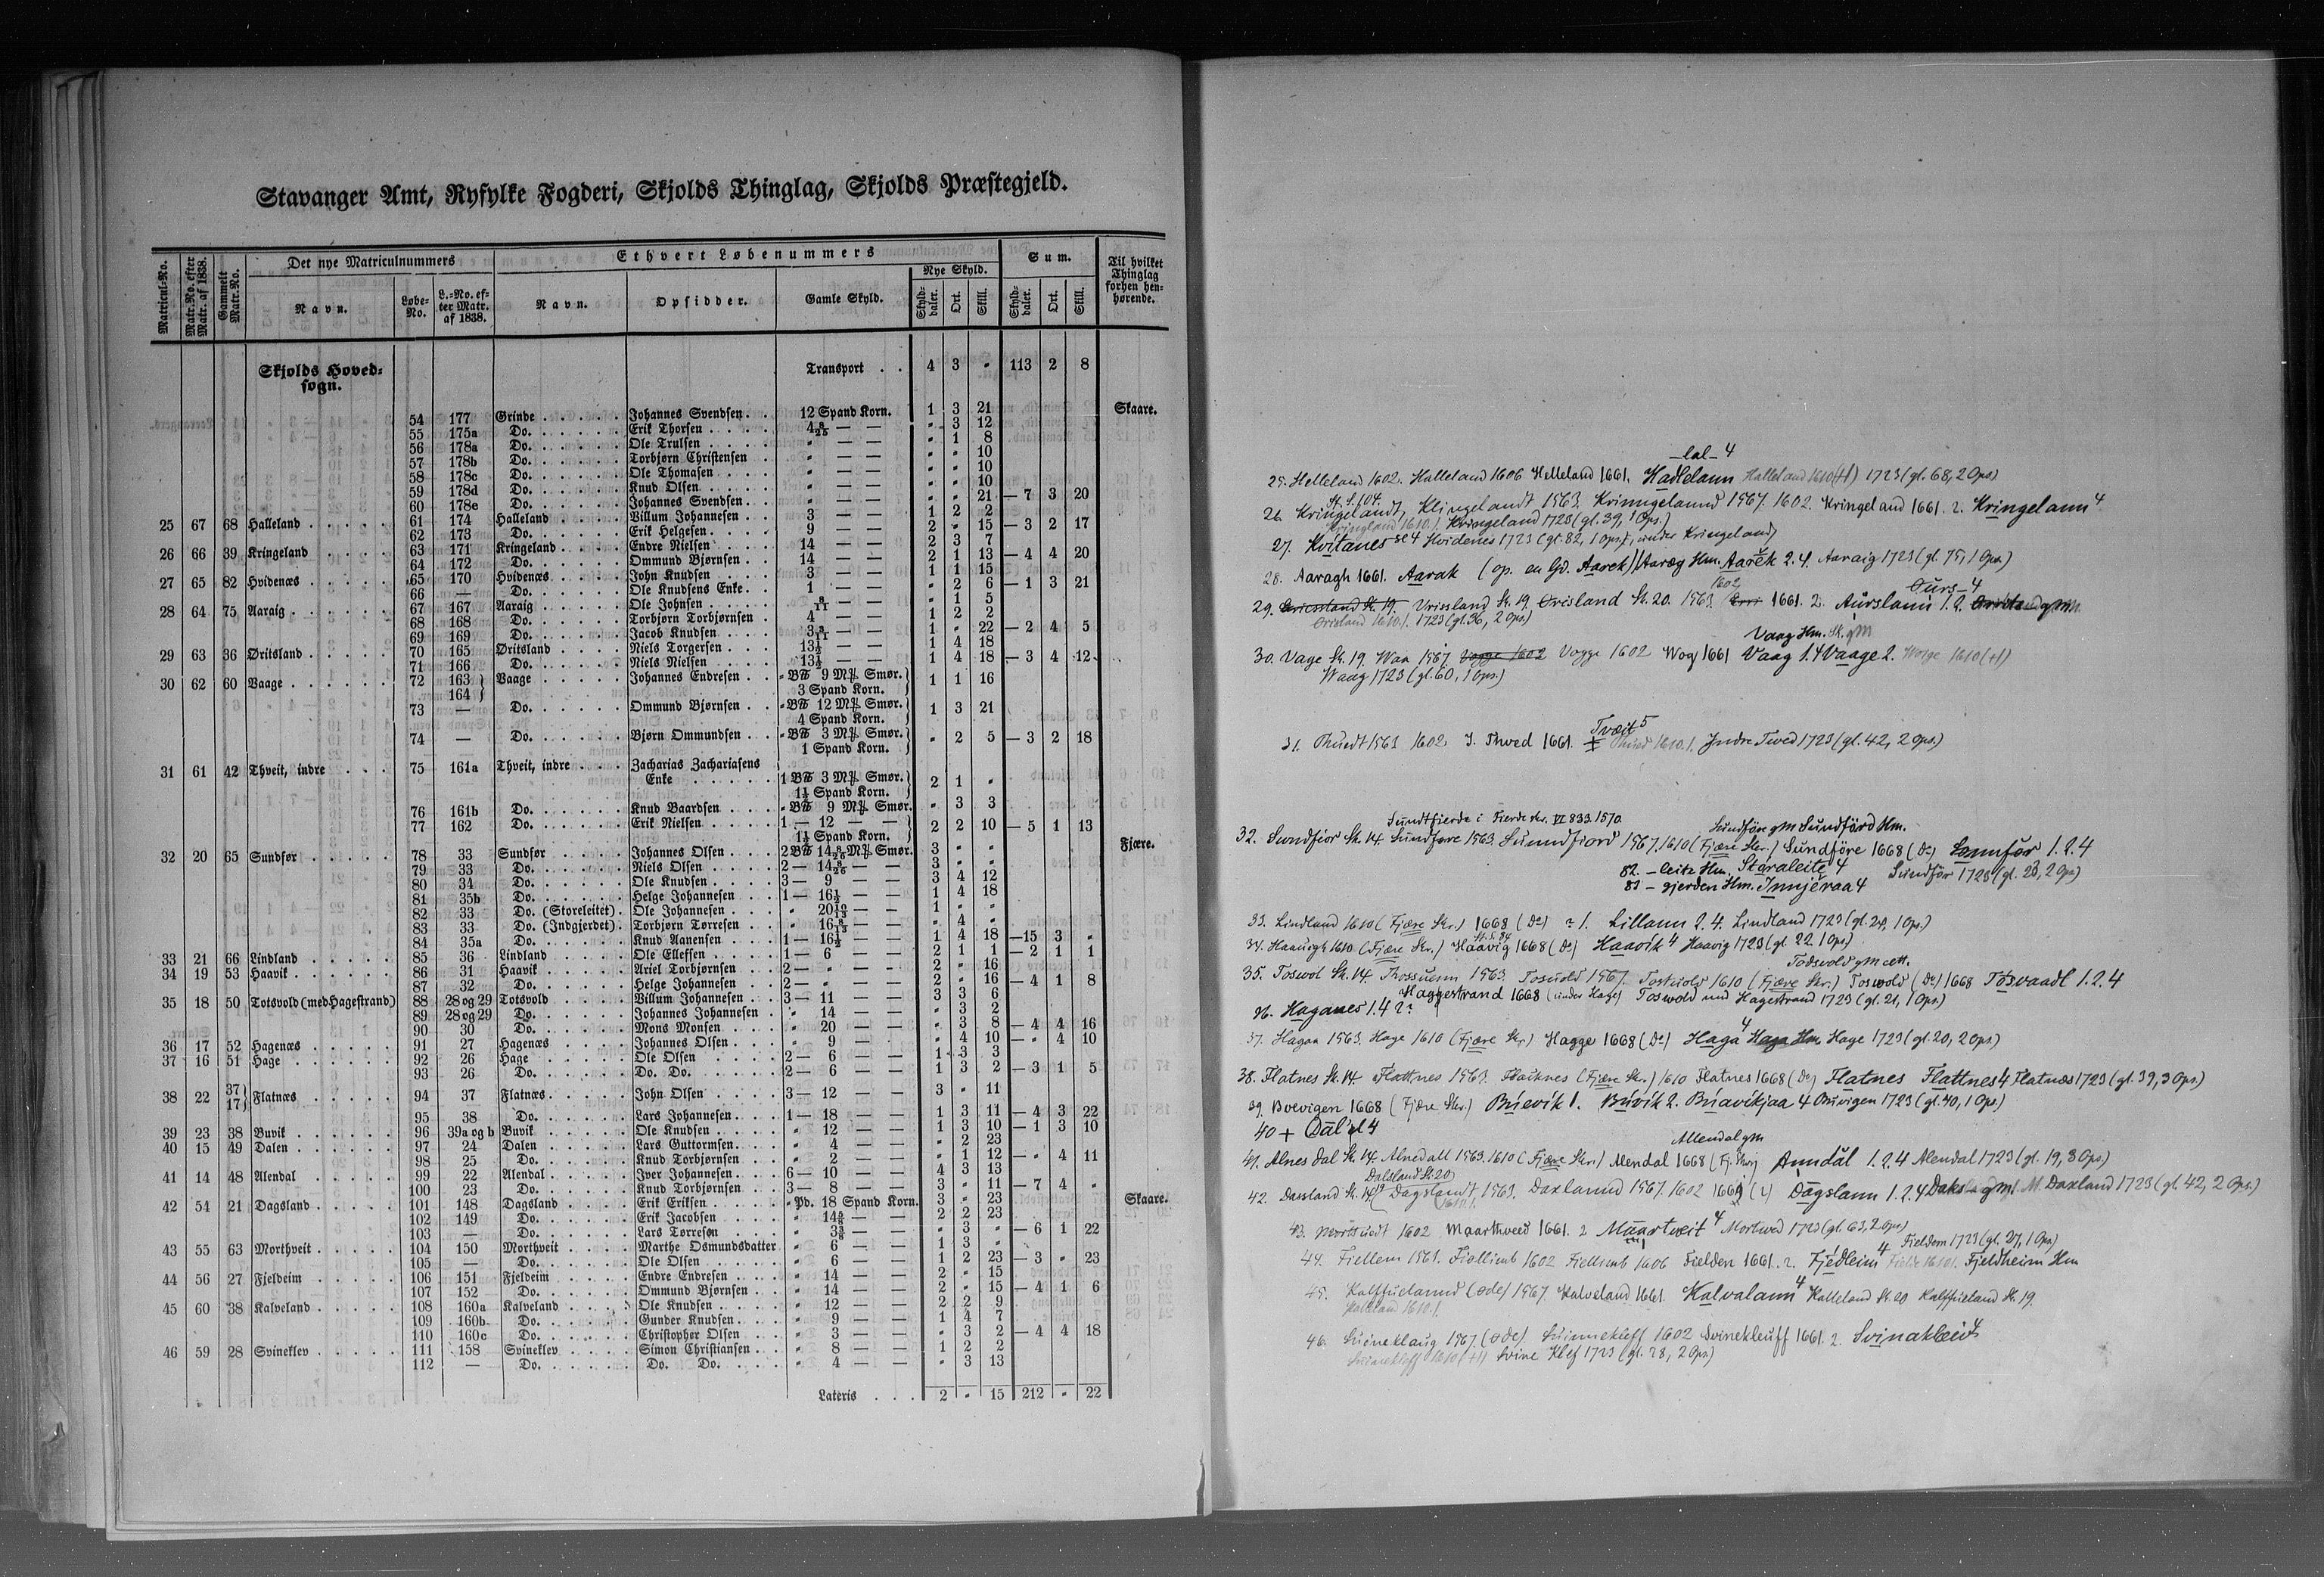 Stavanger Amt, Ryfylke Fogderi, Skjolds Thinglag, Skjolds Præstegjeld.
Matricul-No. Matr.No. efter Matr. af 1838. Gammelt Matr.No. Det nye Matriculnummers Ethvert Løbenummers Sum. Til hvilket Thinglag forhen henhørende.
Navn. Løbe-No. L.-No. efter Matr. af 1838. Navn. Opsidder. Gamle Skyld. Nye Skyld. Skylddaler. Ort. Skill. Skylddaler. Ort. Skill.
Skjolds Hovedsogn. Transport . . 4 3 " 113 2 8
54 177 Grinde Johannes Svendsen 12 Spand Korn. 1 3 21 Skaare.
55 175a Do. Erik Thorsen 4 8/25 — — " 3 12
56 178a Do. Ole Trulsen " — — " 1 8
57 178b Do. Torbjørn Christensen " — — " " 10
58 178c Do. Ole Thomasen " — — " " 10
59 178d Do. Knud Olsen " — — " " 10
60 178e Do. Johannes Svendsen " — — " " 21 — 7 3 20
25 67 68 Halleland 61 174 Halleland Villum Johannesen 3 — — 1 2 2
62 173 Do. Erik Helgesen 9 — — 2 " 15 — 3 2 17
26 66 39 Kringeland 63 171 Kringeland Endre Nielsen 14 — — 2 3 7
64 172 Do. Ommund Bjørnsen 14 — — 2 1 13 — 4 4 20
27 65 82 Hvidenæs 65 170 Hvidenæs John Knudsen 3 — — 1 1 15
66 — Do. Ole Knudsens Enke 1 — — " 2 6 — 1 3 21
28 64 75 Aaraig 67 167 Aaraig Ole Johnsen 8/11 — — " 1 5
68 168 Do. Torbjørn Torbjørnsen 4 — — 1 2 2
69 169 Do. Jacob Knudsen 3 3/11 — — 1 " 22 — 2 4 5
29 63 36 Øritsland 70 165 Øritsland Niels Torgersen 13½ — — 1 4 18
71 166 Do. Niels Nielsen 13½ — — 1 4 18 — 3 4 12
30 62 60 Vaage 72 163 164 Vaage Johannes Endresen " 9 Smør. 3 Spand Korn. 1 1 16
73 — Do. Ommund Bjørnsen " 12 Smør. 4 Spand Korn. 1 3 21
74 — Do. Bjørn Ommundsen " 3 Smør. 1 Spand Korn. " 2 5 — 3 2 18
31 61 42 Thveit, indre 75 161a Thveit, indre Zacharias Zachariasens Enke 1 3 Smør. 1½ Spand Korn. 2 1 "
76 161b Do. Knud Baardsen " 9 Smør. " 3 3
77 162 Do. Erik Nielsen 1 — 12 — — 1½ Spand Korn. 2 2 10 — 5 1 13
32 20 65 Sundfør 78 33 Sundfør Johannes Olsen 2 14 8/26 Smør. 3 " " Fjære.
79 33 Do. Niels Olsen 2 — 14 8/26 — — 3 " "
80 34 Do. Ole Knudsen 3 — 9 — — 3 4 12
81 35b Do. Helge Johannesen 1 — 16½ — — 1 4 18
82 33 Do. (Storeleitet) Ole Johannesen " 20 10/13 — — 1 " "
83 33 Do. (Indgjerdet) Torbjørn Tørresen " 16 8/13 — — " 4 "
84 35a Do. Knud Aanensen 1 — 16½ — — 1 4 18 — 15 3 "
33 21 66 Lindland 85 36 Lindland Ole Ellefsen 1 — 6 — — 2 1 1 — 2 1 1
34 19 53 Haavik 86 31 Haavik Ariel Torbjørnsen 2 — " — — 2 " 16
87 32 Do. Helge Johannesen 2 — " — — 2 " 16 — 4 1 8
35 18 50 Totsvold (med Hagestrand) 88 28 og 29 Totsvold Villum Johannesen 3 — 11 — — 3 3 6
89 28 og 29 Do. Johannes Johannesen " 14 — — " 3 2
90 30 Do. Mons Monsen " 20 — — " 3 8 — 4 4 16
36 17 52 Hagenæs 91 27 Hagenæs Johannes Olsen " 9 — — " 4 10 — " 4 10
37 16 51 Hage 92 26 Hage Ole Olsen 2 — 6 — — 1 3 3
93 26 Do. Do. Do. 2 — 6 — — 1 3 2 — 3 1 5
38 22 37 17 Flatnæs 94 37 Flatnæs John Olsen 3 — 12 — — 3 " 11
95 38 Do. Lars Johannesen 1 — 18 — — 1 3 11 — 4 3 22
39 23 38 Buvik 96 39a og b Buvik Ole Knudsen " 12 — — 1 3 10 — 1 3 10
40 15 49 Dalen 97 24 Dalen Lars Guttormsen " 4 — — " 2 23
98 25 Do. Knud Torbjørnsen " 2 — — " 1 12 — " 4 11
41 14 48 Alendal 99 22 Alendal Iver Johannesen 6 — 10 — — 4 3 13
100 23 Do. Knud Torbjørnsen 3 — 8 — — 3 " 11 — 7 4 "
42 54 21 Dagsland 101 148 Dagsland Erik Eriksen " Pd. 18 Spand Korn. 3 " 23 Skaare.
102 149 Do. Erik Jacobsen " 14 — — 2 2 23
103 — Do. Lars Tørresen " 3 — — " 3 " — 6 1 22
43 55 63 Morthveit 104 150 Morthveit Marthe Osmundsdatter " 6 — — 1 3 "
105 — Do. Ole Olsen " 6 — — 1 2 23 — 3 " 23
44 56 27 Fjeldeim 106 151 Fjeldeim Endre Endresen " 14 — — 2 " 15
107 152 Do. Ommund Bjørnsen " 14 — — 2 " 15 — 4 1 6
45 60 38 Kalveland 108 160a Kalveland Ole Knudsen " 12 — — 2 2 9
109 160b Do. Gunder Knudsen " 9 — — 1 4 7
110 160c Do. Christopher Olsen " 3 — — " 3 2 — 4 4 18
46 59 28 Svineklev 111 158 Svineklev Simon Christiansen " 8 — — 1 2 2
112 — Do. Do. Do. " 4 — — " 3 13
Lateris . . . 2 " 15 212 " 22
-lal- 4
25. Helleland 1602. Halleland 1606 Helleland 1661. Hadlelann Halleland 1610 (+1) 1723 (gl. 68, 2 Ops.)
St. S. 104.
26. Kringelandt, Klingelandt 1563. Kringelannd 1567. 1602. Kringeland 1661. 2. Kringelann 4
Kringeland 1610.1. Kringeland 1723 (gl. 39, 1 Ops.)
27. Kvitanes 4 Hvidenes 1723 (gl. 82, 1 Ops.), under Kringeland)
28. Aaragh 1661. Aarak (op. en Gd. Aarek) Aaræg Hm. Aarek 2.4. Aaraig 1723 (gl. 75, 1 Ops.)
1602 Ours- 4
29. Vrissland St. 19. Orisland St. 20. 1563 1661. 2. Aurslann 1.2.
Orisland 1610.1. 1723 (gl. 36, 2 Ops.)
Vaag Hm. St. gM
30. Vage St. 19. Waa 1567. Vogge 1602 Vogge 1602 Wog 1661 Vaag 1.4 Vaage 2. Woge 1610 (+1)
Waag 1723 (gl. 60, 1 Ops.)
Tvæit 5
31. Thuedt 1563 1602. J. Thved 1661. + Thued 1610.1. Indre Tved 1723 (gl. 42, 2 Ops.)
Sundtfierde i Fierde skr. VI 833. 1570. Sundföre gM Sundförd Hm.
32. Sundfior St. 14. Sundfore 1563. Suundfiord 1567. 1610 (Fjære Skr.) Sundföre 1668 (Do) Sunnfor 1.2.4
82 - leite Hm. Storaleite 4 Sundför 1723 (gl. 23, 2 Ops.)
83 - gjerden Hm. Innjeraa 4
33. Lindland 1610 (Fjære Skr.) 1668 (Do) 1. Lillann 2.4. Lindland 1723 (gl. 24, 1 Ops.)
St. S. 84
34. Haauigh 1610 (Fjære Skr.) Haavig 1668 (Do) Haavik 4 Haavig 1723 (gl. 22 1 Ops.)
Todsvold gM cett.
35. Toswol St. 14. Thossuenn 1563. Tosuold 1567. Toskuold 1610 (Fjære Skr.) Toswold (Do) 1668 Tösvaadl 1.2.4
Haggestrand 1668 (under Hage) Toswold und Hagestrand 1723 (gl. 21, 1 Ops.)
36. Haganes 1.4 2.
37. Hagan 1563. Hage 1610 (Fjære Skr.) Hagge 1668 (Do) Haga 4 Haga Hm. Hage 1723 (gl. 20, 2 Ops.)
38. Flatnes St. 14. Flattnes 1563. (Fjære Skr.) 1610 Flatnes 1668 (Do) Flatnes Flattnes 4 Flatnæs 1723 (gl. 39, 3 Ops.)
39. Bvevigen 1668 (Fjære Skr.) Buevik 1. Buvik 2. Buavikjaa 4 Buvigen 1723 (gl. 40, 1 Ops.)
40 + Dal'el 4
Allendal gM
41. Alnes dal St. 14. Alnedall 1563. 1610 (Fjære Skr.) Alendal 1668 (Fj. Skr) Anndal 1.2.4 Alendal 1723 (gl. 19, 3 Ops.)
Dalsland St. 20
42. Daxsland St. 14 Dagslandt 1563. Daxlannd 1567. 1602 1661 (2) Dagslann 1.2.4 Daksl- gM. Daxland 1723 (gl. 42, 2 Ops.)
43. Morttuedt 1602 Maarthveed 1661. 2 Maartveit 4 Mortved 1723 (gl. 63, 2 Ops.)
Fieldem 1723 (gl. 27, 1 Ops.)
44. Fiellem 1563. Fiellimb 1602 Fiellimb 1606 Fielden 1661. 2. Fjedleim 4 Fjeldheim Hm
45. Kalffuelannd (øde) 1567. Kalveland 1661. Kalvalann 4 Kalleland St. 20 Kalffueland St. 19.
Kalleland 1610.1.
46. Suineklaug 1567 (øde). Suinnekleff 1602 Svinekleuff 1661. 2. Svinakleiv 4
Suinekleff 1610 (+1) Svine Klef 1723 (gl. 28, 2 Ops.)